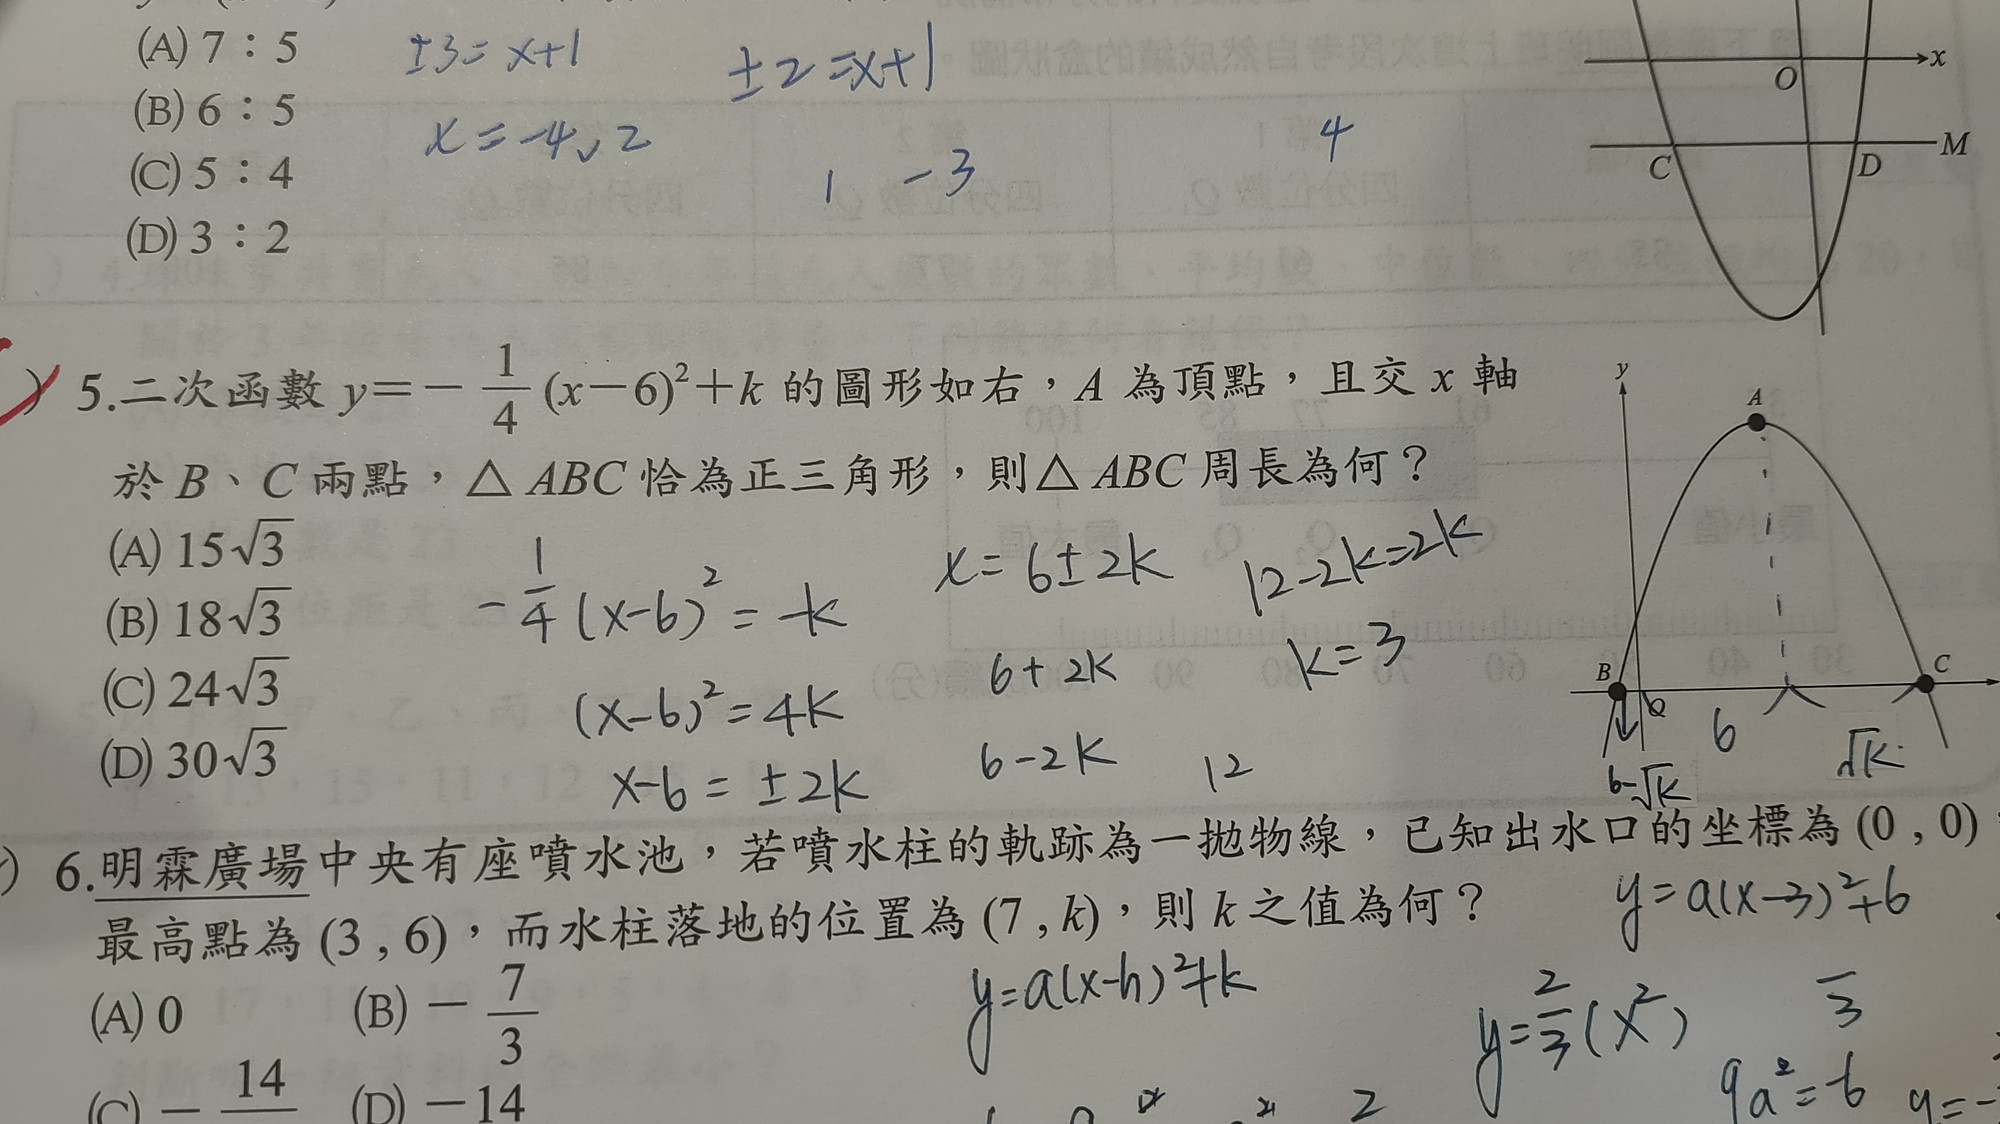 (A) 7：5
(B) 6：5
(C) 5：4
(D) 3：2
±3=x+1
x=-4、2
±2=x+1
1 -3
4
O
x
M
C
D
5.二次函數 y=-1/4(x-6)²+k 的圖形如右，A 為頂點，且交 x 軸
於 B、C 兩點，△ABC 恰為正三角形，則△ABC 周長為何？
(A) 15√3
(B) 18√3
(C) 24√3
(D) 30√3
-1/4(x-6)²=-k
(x-6)²=4k
x-6=±2k
x=6±2k
6+2k
6-2k
12-2k=2k
k=3
12
y
A
B
C
6
√k
6-√k
6.明霖廣場中央有座噴水池，若噴水柱的軌跡為一拋物線，已知出水口的坐標為 (0 , 0)
最高點為 (3 , 6)，而水柱落地的位置為 (7 , k)，則 k 之值為何？
(A) 0
(B) -7/3
(C) -14
(D) -14
y=a(x-h)²+k
y=a(x-3)²+6
y=2/3(x²)
3
9a²=-6
2